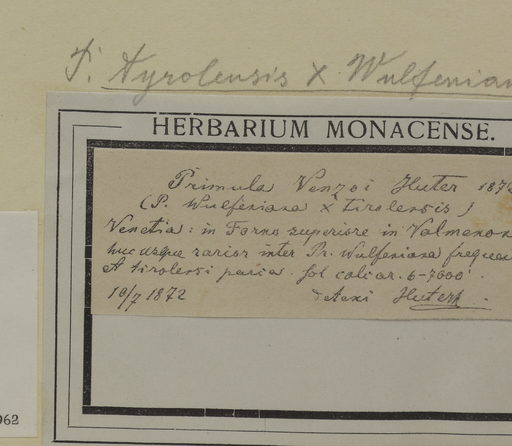 P. tyrolensis X Wulfenian
HERBARIUM MONACENSE.
Primula Venzoi Huter 187
(P. Wulfeniana X tirolensis)
Venetia: in Forno superiore in Valmenon
hucusque rarior inter Pr. Wulfeniana frequen
et tirolensi Sol calcar. 6-7000'.
10/7 1872 Huter
962